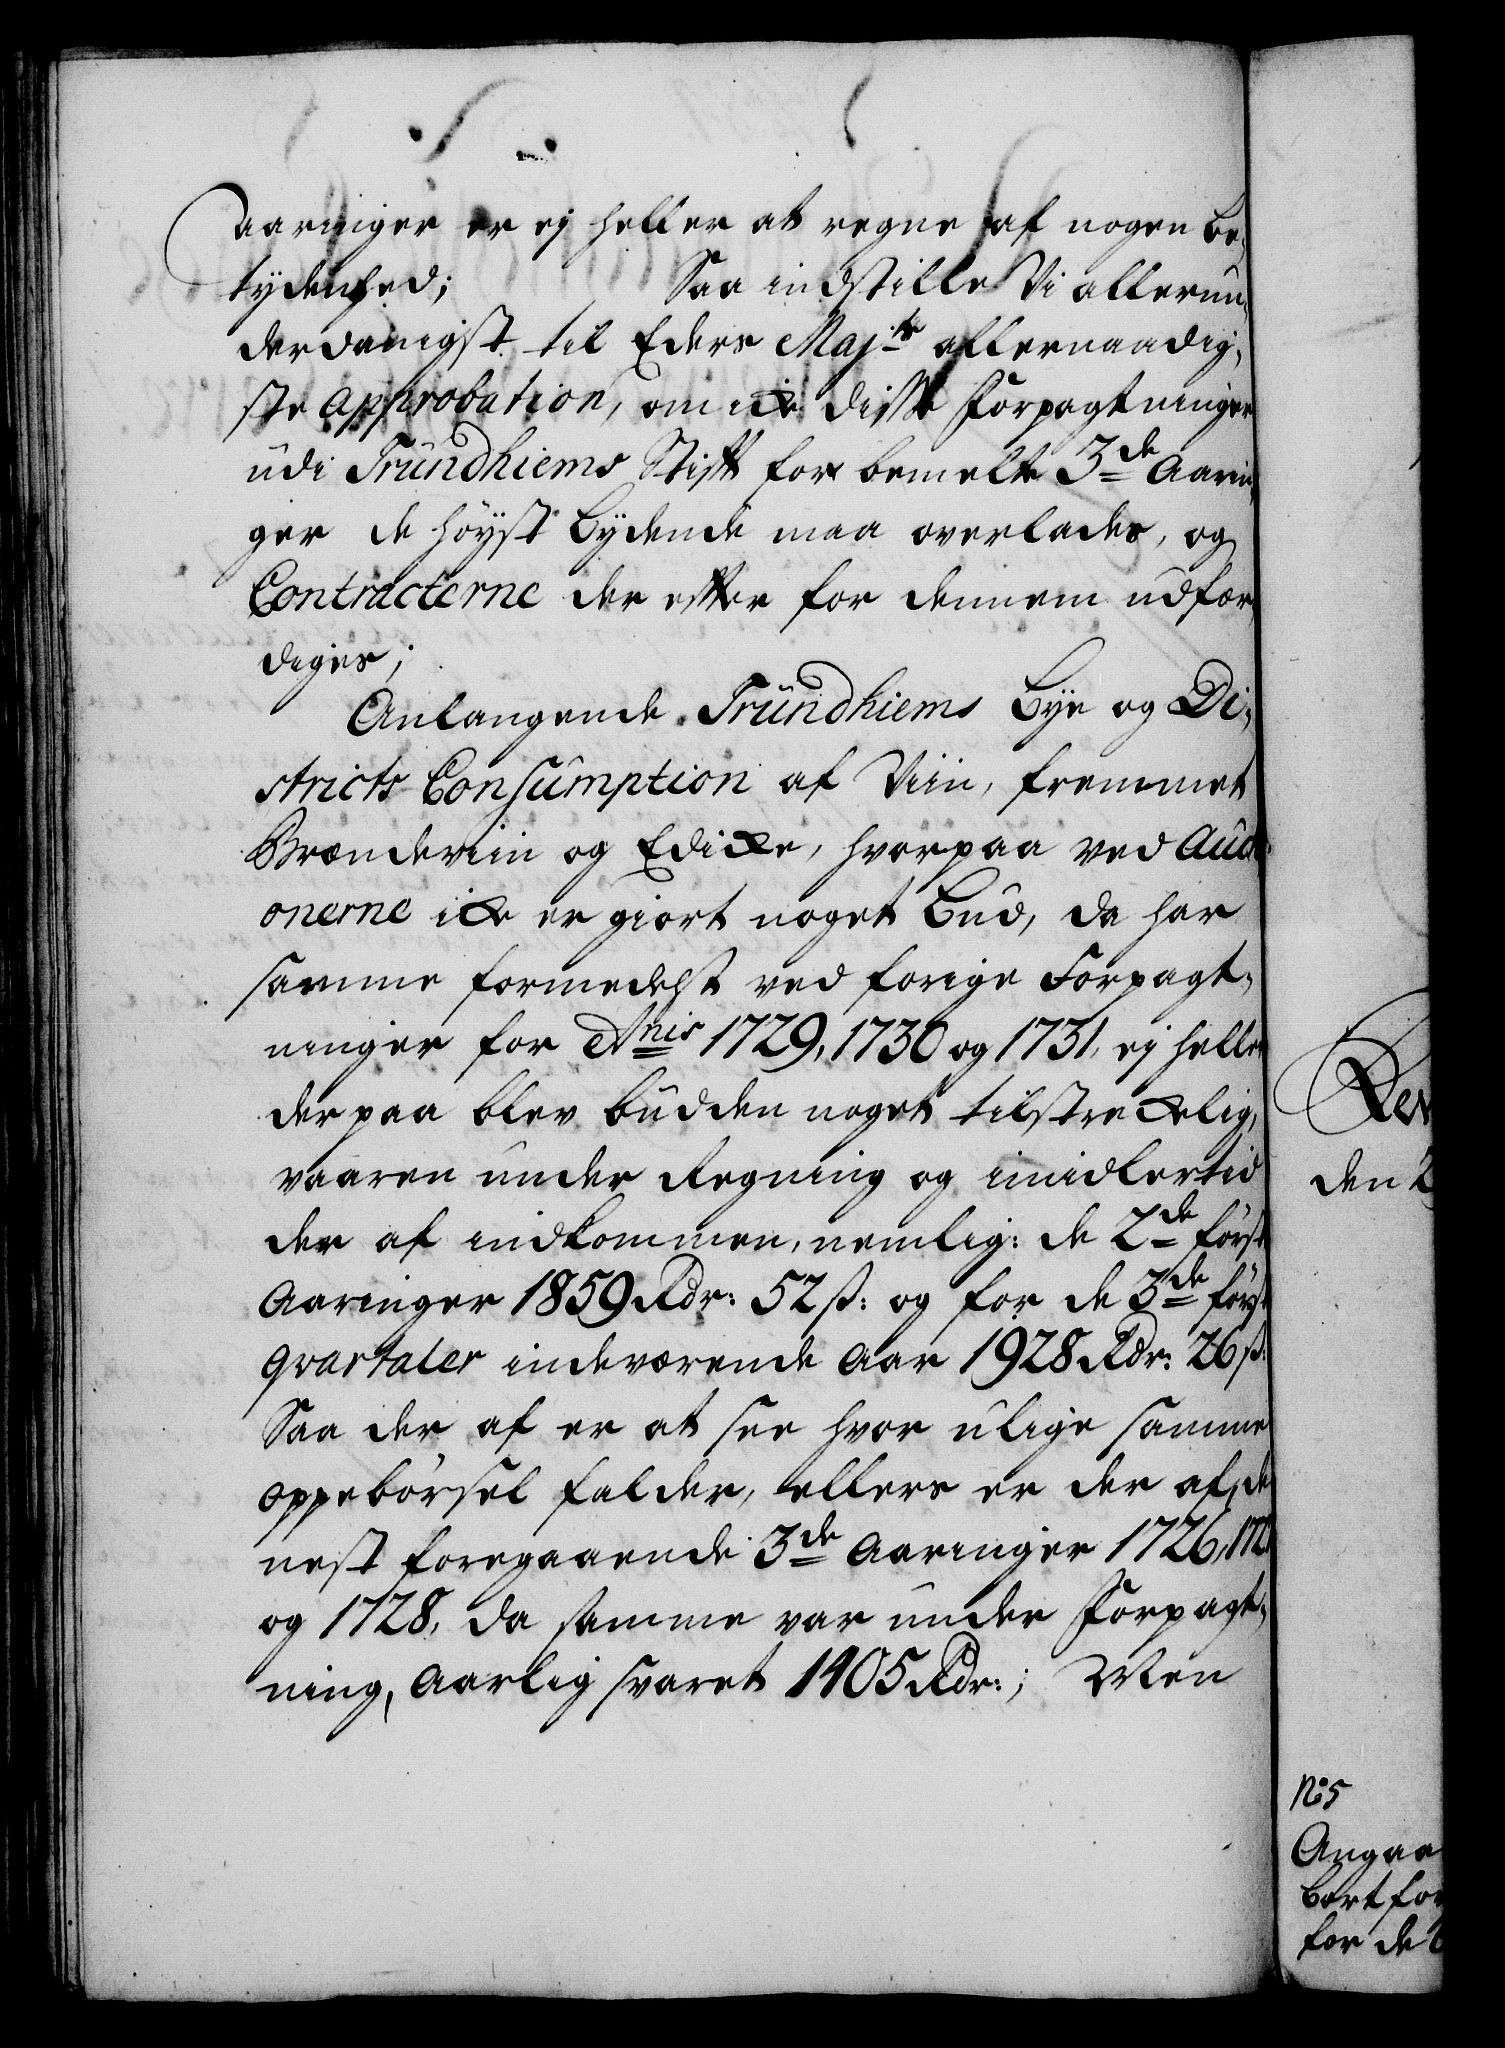 aaringer er ej heller at regne af nogen be-
tydenhed; Saa indstille Vi allerun-
derdanigst til Eders Maj:ts allernaadig-
ste Approbation, om icke disse Forpagtninger
udi Trundhiems Stift for bemelte 3de Aarin-
ger de höystbydende maa overlades, og
Contracterne der efter for dennem udfær
diges;
Anlangende Trundhiems Bye og Di-
stricts Consumption af Viin, fremmet
Brændeviin og Edicke, hvorpaa ved Aucti
onerne icke er giort noget Bud, da har
samme formedelst ved forige Forpagt-
ninger for Anis 1729, 1730 og 1731, ej heller
der paa blev budden noget tilstreckelig,
vaaren under Regning og imidlertid
der af indkommen, nemlig: de 2de först
Aaringer 1859 Rdr: 52 ß: og for de 3de först
Qvartaler indeværende Aar 1928 Rdr: 26 ß:
Saa der af er at see hvor ulige samme
Oppebörsel falder, ellers er der af de
nest foregaaende 3de Aaringer 1726, 172
og 1728, da samme var under Forpagt-
ning, Aarlig svaret 1405 Rdr:; Men
den 2
No 5
Angaa
bort for
for de